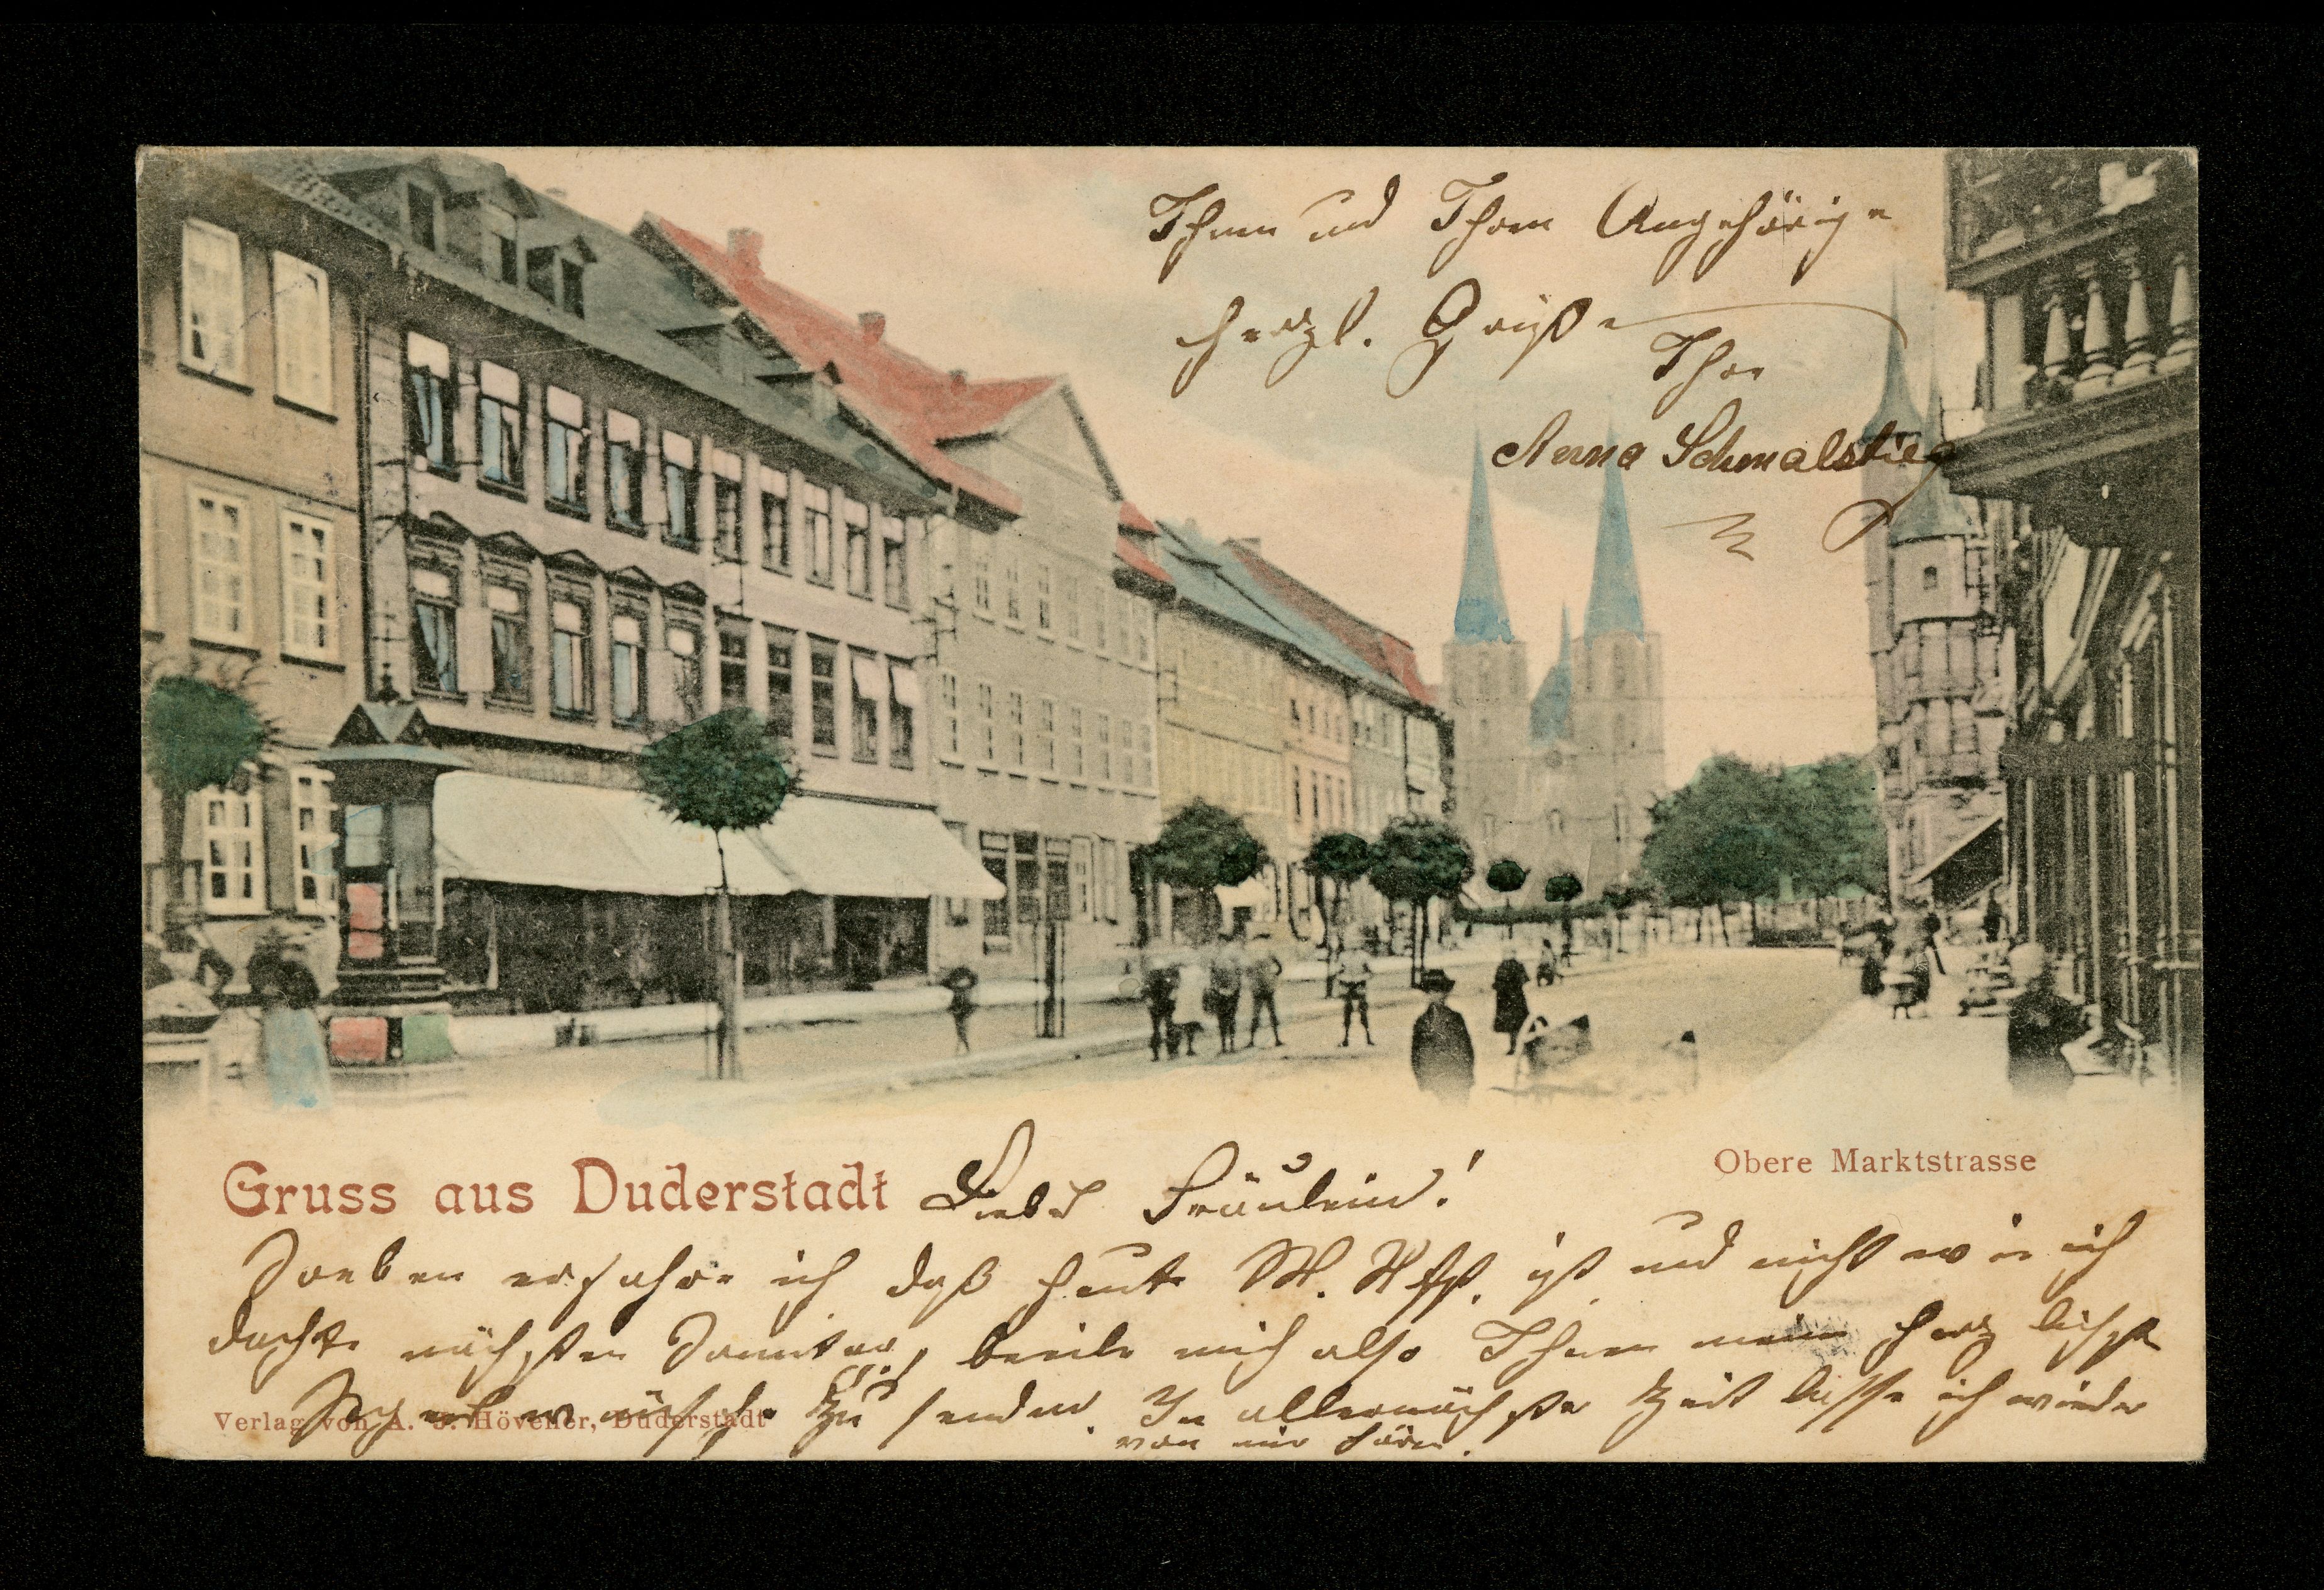 Ihnen und Ihren Angehörige
herzl. Grüße
Ihre
Anna Schmalstieg
Gruss aus Duderstadt
Obere Marktstrasse
Liebes Fräulein!
Soeben erfahre ich daß heute ist und nicht wie ich
dachte nächsten Sonntag, beeile mich also Ihnen meine herzlichste
zu senden. In allernächster Zeit lasse ich wieder
von mir hören.
Verlag von A. J. Hövener, Duderstadt